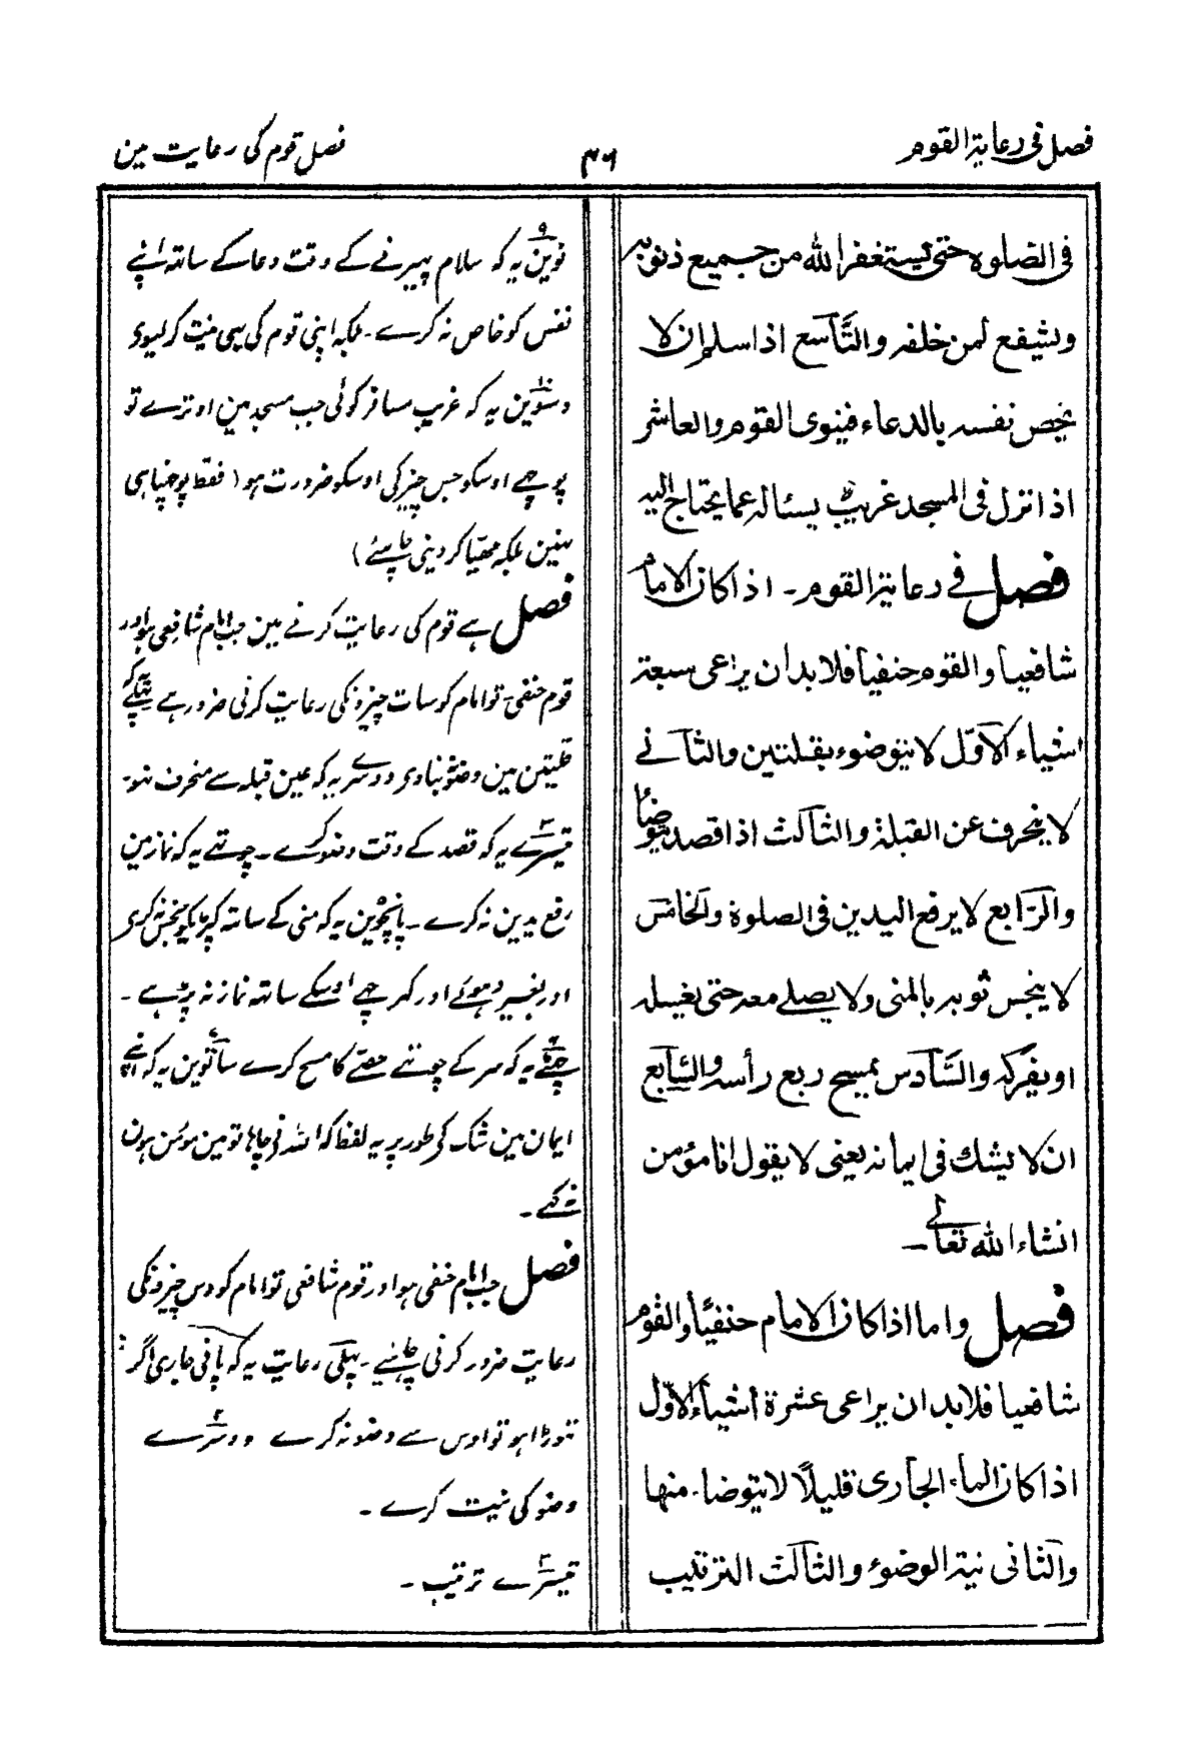 فصل فی رعایة القوم
۳۶
فصل قوم کی رعایت مین
فی الصلوة حتی یستغفر الله من جمیع ذنوبه
ویشفع لمن خلفه والتاسع اذا سلم ان لا
یخص نفسه بالدعاء فینوی القوم والعاشر
اذا نزل فی المسجد غریب یسئاله عما یحتاج الیه
فصل فے رعایة القوم۔ اذا کان الامام
شافعیا والقوم حنفیا فلا بد ان یراعی سبعة
اشیاء الاوّل لا یتوضوء بقلتین والثانے
لا ینحرف عن القبلة والثالث اذا قصد یتوضأ
والرّابع لا یرفع الیدین فی الصلوة والخامس
لا ینجس ثوبه بالمنی ولا یصلے معه حتی یغسله
او یفرکه والسّادس یمسح ربع رأسه والسّابع
ان لا یشك فی ایمانه یعنی لا یقول انا مؤمن
انشاء الله تعالے۔
فصل واما اذا کان الامام حنفیًا والقوم
شافعیا فلا بد ان یراعی عشرة اشیاء الاوّل
اذا کان الماء الجاری قلیلًا لا یتوضا منها
والثانی نیة الوضوء والثالث الترتیب
نوین یہ کہ سلام پہیرنے کے وقت دعا کے ساتہ اپنے
نفس کو خاص نہ کرے۔ بلکہ اپنی قوم کی بہی نیت کر لیوی
دسوین یہ کہ غریب مسافر کوئی جب مسجد مین اوترے تو
پوچہے اوسکو جس چیز کی اوسکو ضرورت ہو (فقط پوچہنا ہی
نہین بلکہ مہیّا کر دینی چاہئے)
فصل ہے قوم کی رعایت کرنے مین جب امام شافعی ہو اور
قوم حنفی تو امام کو سات چیزونکی رعایت کرنی ضرور ہے پہلے یہ کہ
قلیتن مین وضو نبناوی دوسرے یہ کہ عین قبلہ سے منحرف نہو۔
تیسرے یہ کہ قصد کے وقت وضو کرے۔ چوتہے یہ کہ نماز مین
رفع یدین نہ کرے۔ پانچوین یہ کہ منی کے ساتہ کپڑیکو نجس نہ کری
اور بغیر دہوئے اور کہرچے اوسکے ساتہ نماز نہ پڑہے۔
چہٹے یہ کہ سر کے چوتہے حصّے کا مسح کرے ساتوین یہ کہ اپنے
ایمان مین شک کے طور پر یہ لفظ کہ اللہ نے چاہا تو مین مؤمن ہون
نہ کہے۔
فصل جب امام حنفی ہو اور قوم شافعی تو امام کو دس چیزونکی
رعایت ضرور کرنی چاہئیے۔ پہلی رعایت یہ کہ پانی جاری اگر
تہوڑا ہو تو اوس سے وضو نہ کرے دوسرے
وضو کی نیت کرے۔
تیسرے ترتیب۔